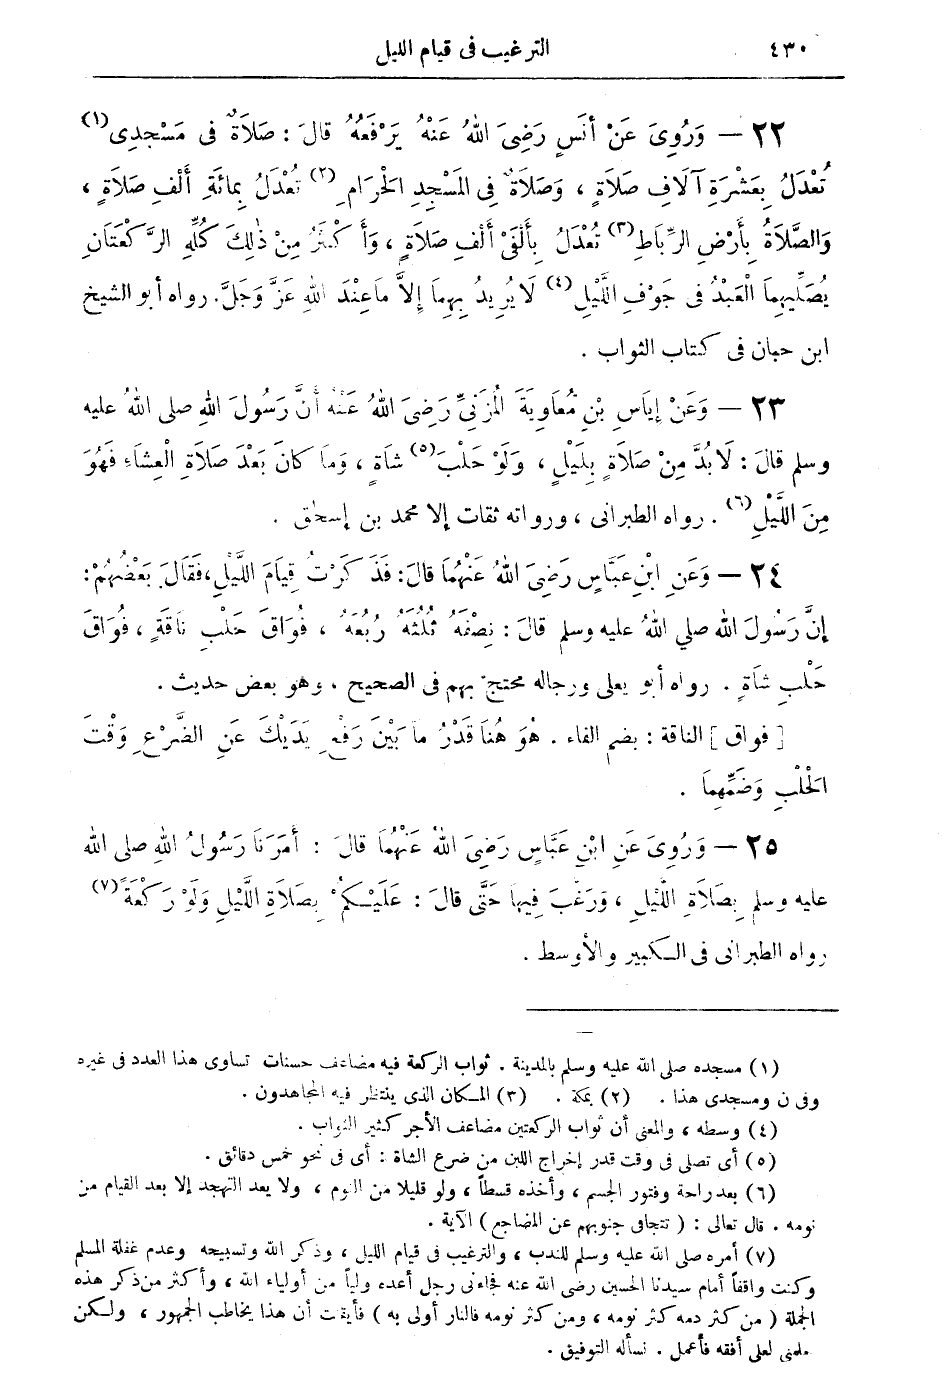 ٤٣٠ الترغيب فى قيام الليل
٢٢ — وَرُوِىَ عَنْ أَنَسٍ رَضِىَ اللهُ عَنْهُ يَرْفَعُهُ قالَ : صَلاَةٌ فى مَسْجِدِى(١)
تُعْدَلُ بِعَشْرَةِ آلاَفِ صَلاَةٍ ، وَصَلاَةٌ فِى المَسْجِدِ الحَرامِ(٢) تُعْدَلُ بِمائَةِ أَلْفِ صَلاَةٍ ،
وَالصَّلاَةُ بِأَرْضِ الرِّبَاطِ(٣) تُعْدَلُ بِأَلْفَىْ أَلْفِ صَلاَةٍ ، وَأَكْثَرُ مِنْ ذٰلِكَ كُلِّهِ الرَّكْعَتَانِ
يُصَلِّيهِمَا الْعَبْدُ فى جَوْفِ اللَّيْلِ(٤) لاَ يُرِيدُ بِهِما إِلاَّ مَا عِنْدَ اللهِ عَزَّ وَجَلَّ. رواه أبو الشيخ
ابن حبان فى كتاب الثواب .
٢٣ — وَعَنْ إِيَاسِ بْنِ مُعَاوِيَةَ المُزَنِىِّ رَضِىَ اللهُ عَنْهُ أَنَّ رَسُولَ اللهِ صلى اللهُ عليه
وسلم قالَ : لَا بُدَّ مِنْ صَلاَةٍ بِلَيْلٍ ، وَلَوْ حَلْبَ(٥) شَاةٍ ، وَمَا كانَ بَعْدَ صَلاَةِ الْعِشَاءِ فَهُوَ
مِنَ اللَّيْلِ(٦) . رواه الطبرانى ، ورواته ثقات إلا محمد بن إسحٰق .
٢٤ — وَعَنِ ابْنِ عَبَّاسٍ رَضِىَ اللهُ عَنْهُمَا قالَ: فَذَكَرْتُ قِيَامَ اللَّيْلِ،فَقَالَ بَعْضُهُمْ:
إِنَّ رَسُولَ الله صلي اللهُ عليه وسلم قالَ : نِصْفَهُ ثُلُثَهُ رُبُعَهُ ، فُوَاقَ حَلْبِ نَاقَةٍ ، فُوَاقَ
حَلْبِ شَاةٍ . رواه أبو يعلى ورجاله محتج بهم فى الصحيح ، وهو بعض حديث .
[ فواق ] الناقة : بضم الفاء . هُوَ هُنَا قَدْرُ مَا بَيْنَ رَفْعِ يَدَيْكَ عَنِ الضَّرْعِ وَقْتَ
الحَلْبِ وَضَمِّهِمَا .
٢٥ — وَرُوِىَ عَنِ ابْنِ عَبَّاسٍ رَضِىَ اللهُ عَنْهُمَا قالَ : أَمَرَنَا رَسُولُ اللهِ صلى الله
عليه وسلم بِصَلاَةِ اللَّيْلِ ، وَرَغَّبَ فِيهَا حَتَّى قالَ : عَلَيْكُمْ بِصَلاَةِ اللَّيْلِ وَلَوْ رَكْعَةً(٧)
رواه الطبرانى فى الكبير والأوسط .
(١) مسجده صلى الله عليه وسلم بالمدينة . ثواب الركعة فيه مضاعف حسنات تساوى هذا العدد فى غيره
وفى ن ومسجدى هذا . (٢) بمكة . (٣) المكان الذى ينتظر فيه المجاهدون .
(٤) وسطه ، والمعنى أن ثواب الركعتين مضاعف الأجر كثير الثواب .
(٥) أى تصلى فى وقت قدر إخراج اللبن من ضرع الشاة : أى فى نحو خمس دقائق .
(٦) بعد راحة وفتور الجسم ، وأخذه قسطاً ، ولو قليلا من النوم ، ولا يعد التهجد إلا بعد القيام من
نومه . قال تعالى : ( تتجافى جنوبهم عن المضاجع ) الآية .
(٧) أمره صلى الله عليه وسلم للندب ، والترغيب فى قيام الليل ، وذكر الله وتسبيحه وعدم غفلة المسلم
وكنت واقفاً أمام سيدنا الحسين رضى الله عنه فجاءنى رجل أعده ولياً من أولياء الله ، وأكثر من ذكر هذه
الجملة ( من كثر دمه كثر نومه ، ومن كثر نومه فالنار أولى به ) فأيقنت أن هذا يخاطب الجمهور ، ولكن
علمنى لعلى أفقه فأعمل . نسأله التوفيق .